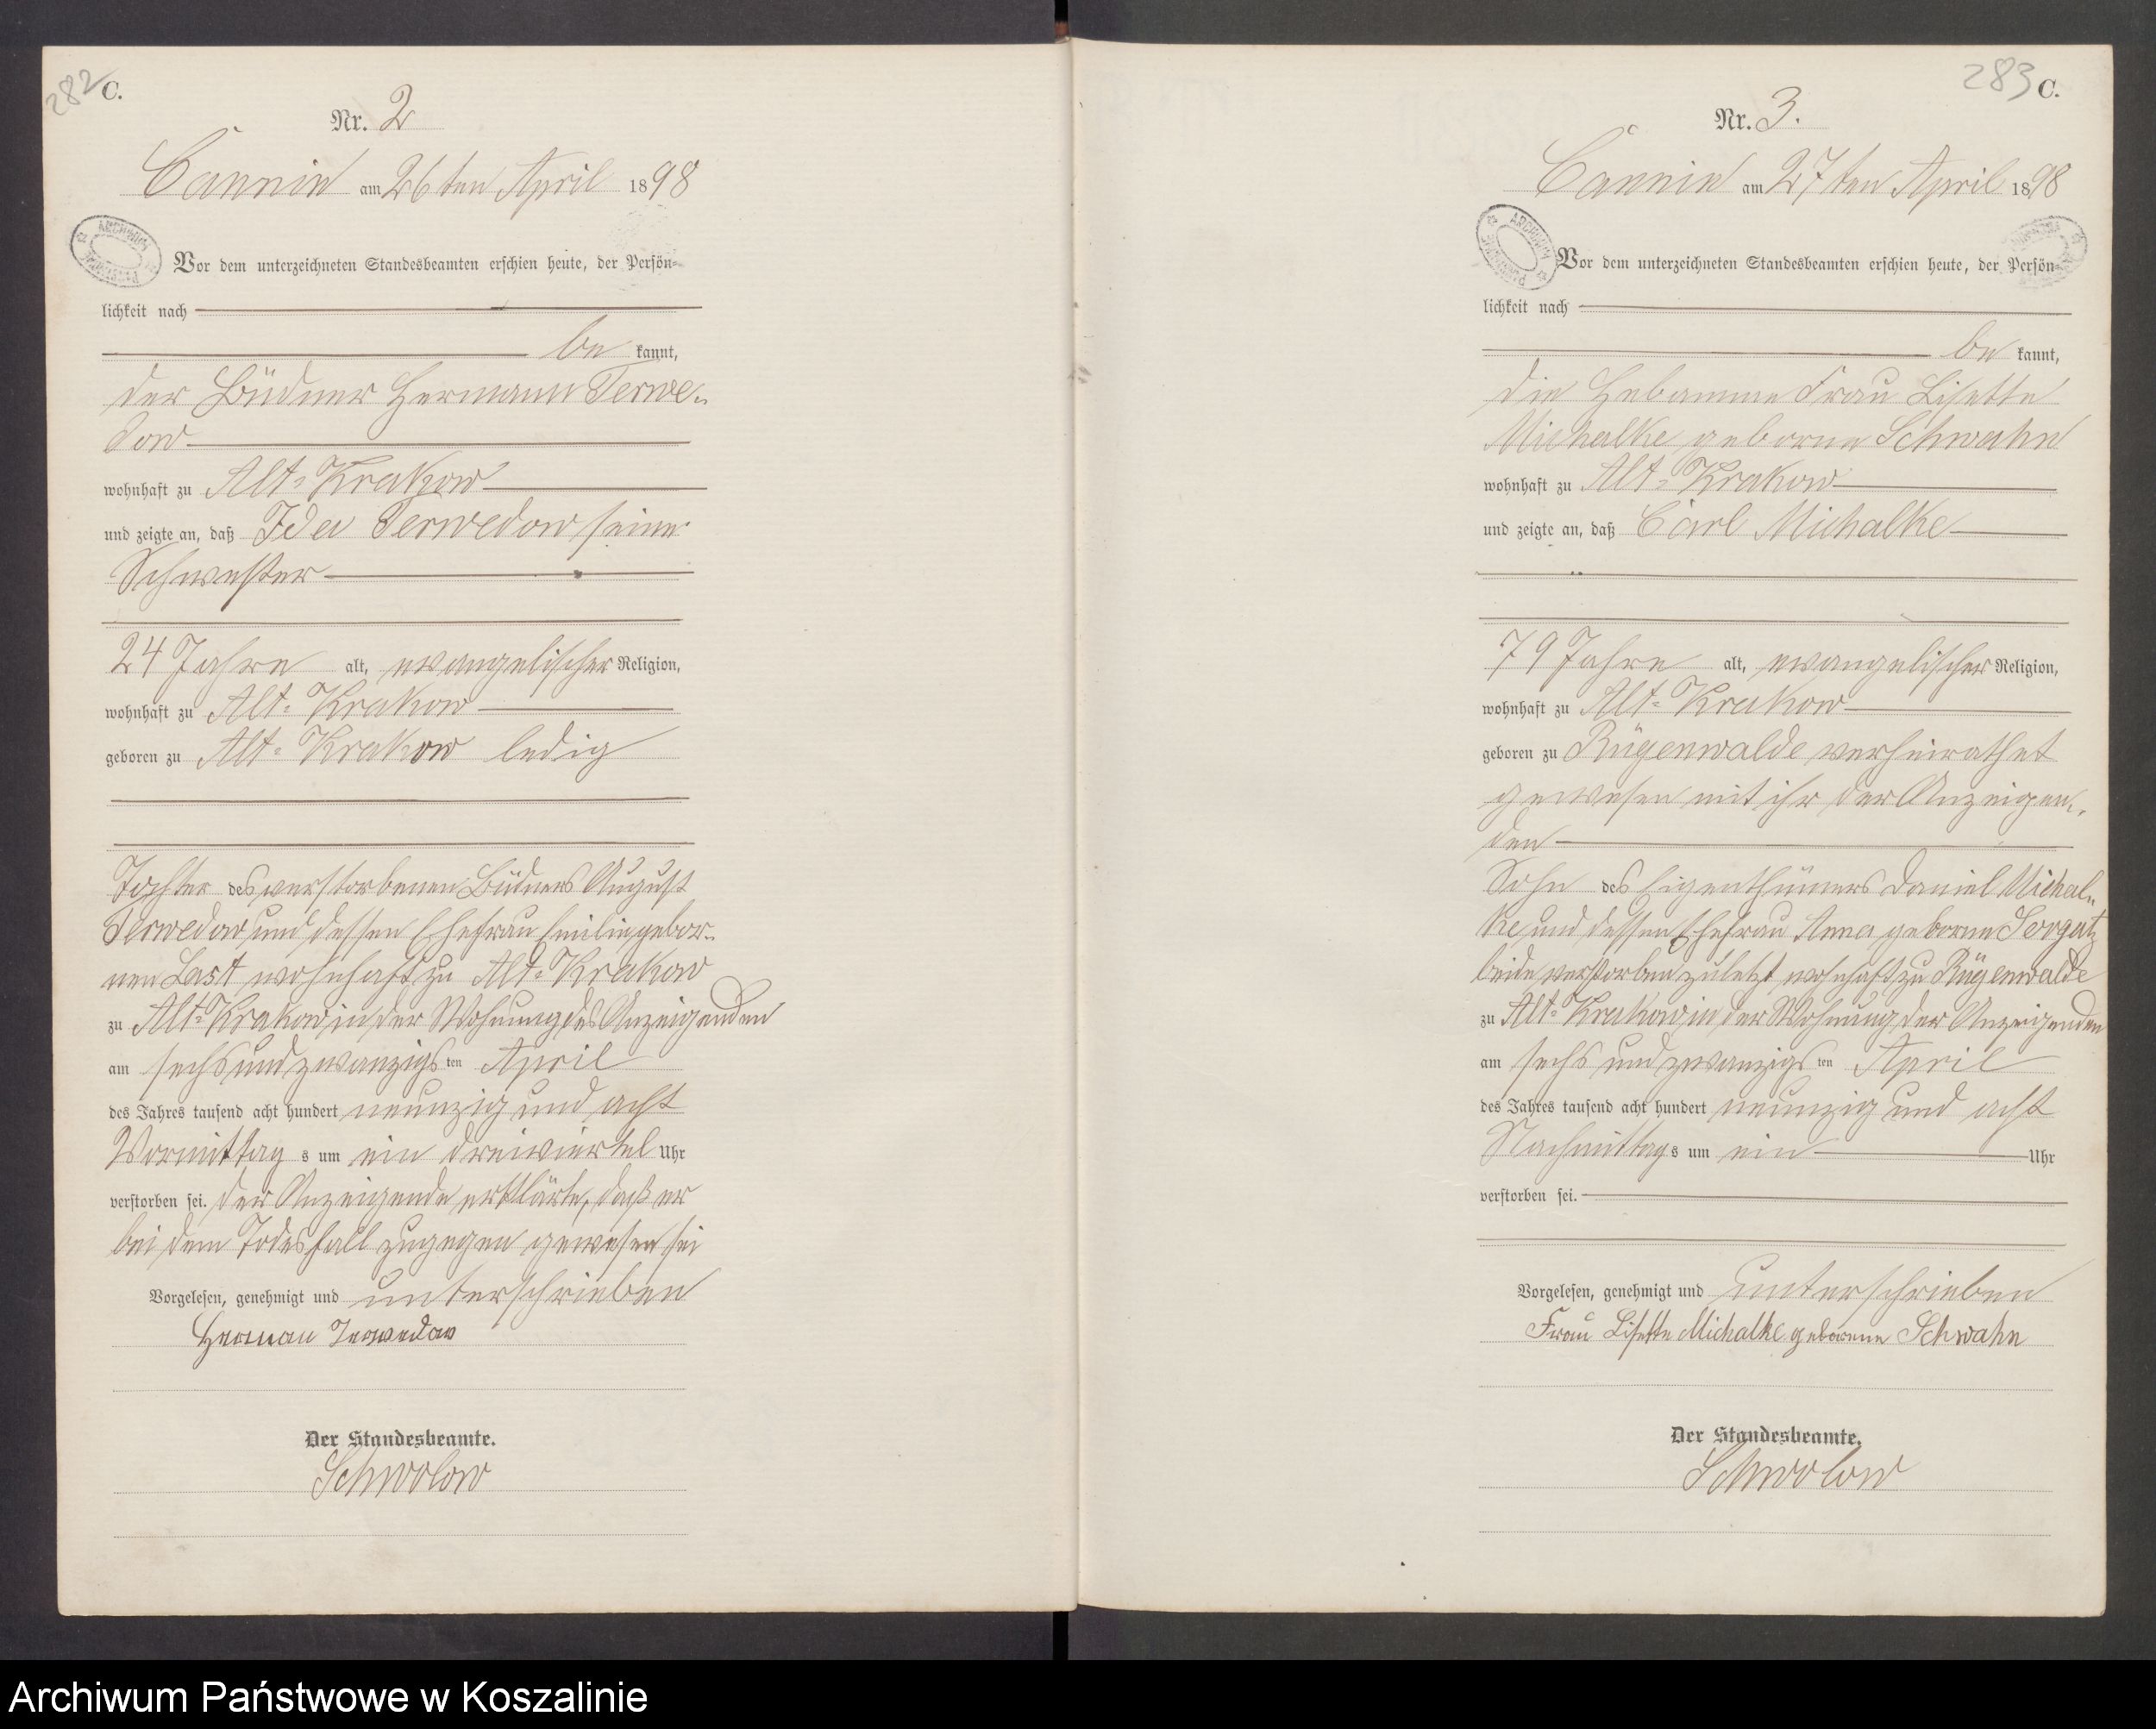 282 C.
Nr. 2
Cannin am 26ten April 1898
Vor dem unterzeichneten Standesbeamten erschien heute, der Persön-
lichkeit nach
be kannt,
der Büdner Hermann Terwe-
dow
wohnhaft zu Alt-Krakow
und zeigte an, daß Ida Terwedow seine
Schwester
24 Jahre alt, evangelischer Religion,
wohnhaft zu Alt-Krakow
geboren zu Alt-Krakow ledig
Tochter des verstorbenen Büdners August
Terwedow und dessen Ehefrau Emilie gebor-
nen Last wohnhaft zu Alt-Krakow
zu Alt-Krakow in der Wohnung des Anzeigenden
am sechsundzwanzigsten April
des Jahres tausend acht hundert neunzig und acht
Vormittags um ein dreiviertel Uhr
verstorben sei. Der Anzeigende erklärte, daß er
bei dem Todesfall zugegen gewesen sei
Vorgelesen, genehmigt und unterschrieben
Herman Terwedow
Der Standesbeamte.
Schwolow
283 C.
Nr. 3.
Cannin am 27ten April 1898
Vor dem unterzeichneten Standesbeamten erschien heute, der Persön-
lichkeit nach
be kannt,
die Hebamme Frau Lisette
Michalke geborne Schwahn
wohnhaft zu Alt-Krakow
und zeigte an, daß Carl Michalke
79 Jahre alt, evangelischer Religion,
wohnhaft zu Alt-Krakow
geboren zu Rügenwalde verheirathet
gewesen mit ihr der Anzeigen-
den
Sohn des Eigenthümers Daniel Michal-
ke und dessen Ehefrau Anna geborne Sorgatz
beide verstorben zuletzt wohnhaft zu Rügenwalde
zu Alt-Krakow in der Wohnung der Anzeigenden
am sechs und zwanzigsten April
des Jahres tausend acht hundert neunzig und acht
Nachmittags um ein Uhr
verstorben sei.
Vorgelesen, genehmigt und unterschrieben
Frau Lisette Michalke geborene Schwahn
Der Standesbeamte.
Schwolow
Archiwum Państwowe w Koszalinie